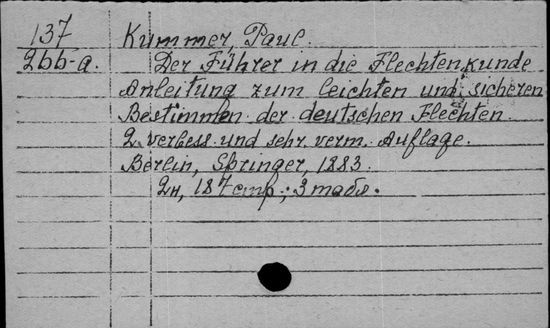 137 Kummer, Paul.
2bb-a. Der Führer in die Flechtenkunde
Anleitung zum leichten und sicheren
Bestimmen der deutschen Flechten.
2. verbess. und sehr verm. Auflage.
Berlin, Springer, 1883.
2н, 187 стр.; 3 табл.